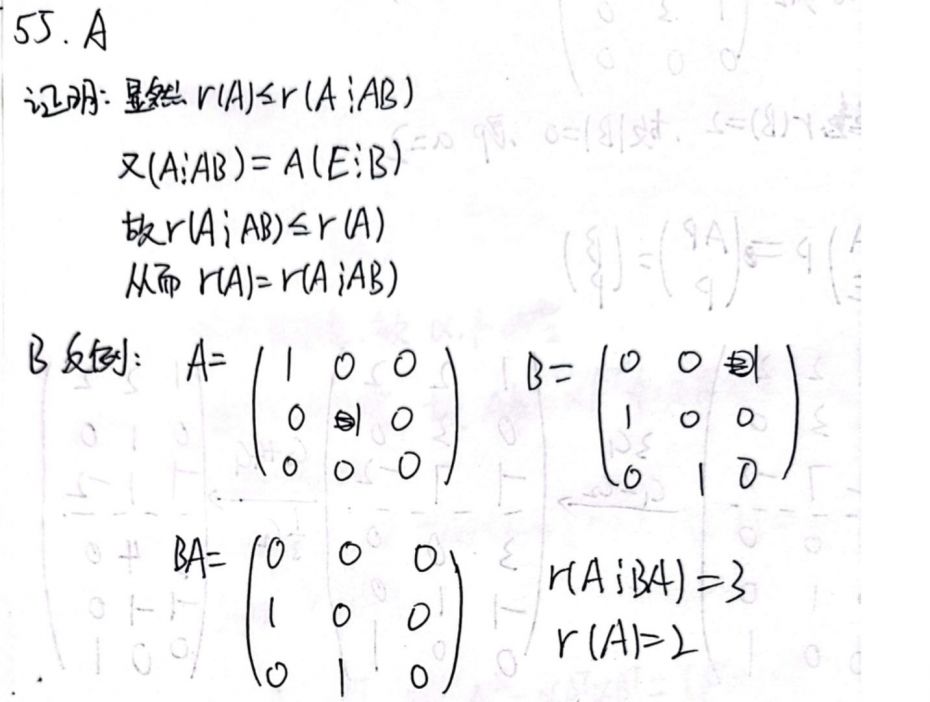 55. A
证明: 显然 r(A)≤r(A⋮AB)
又(A⋮AB)=A(E⋮B)
故r(A⋮AB)≤r(A)
从而 r(A)=r(A⋮AB)
B 反例: A= (1 0 0 B= (0 0 1
0 1 0 1 0 0
0 0 0) 0 1 0)
BA= (0 0 0
1 0 0 r(A⋮BA)=3
0 1 0) r(A)=2